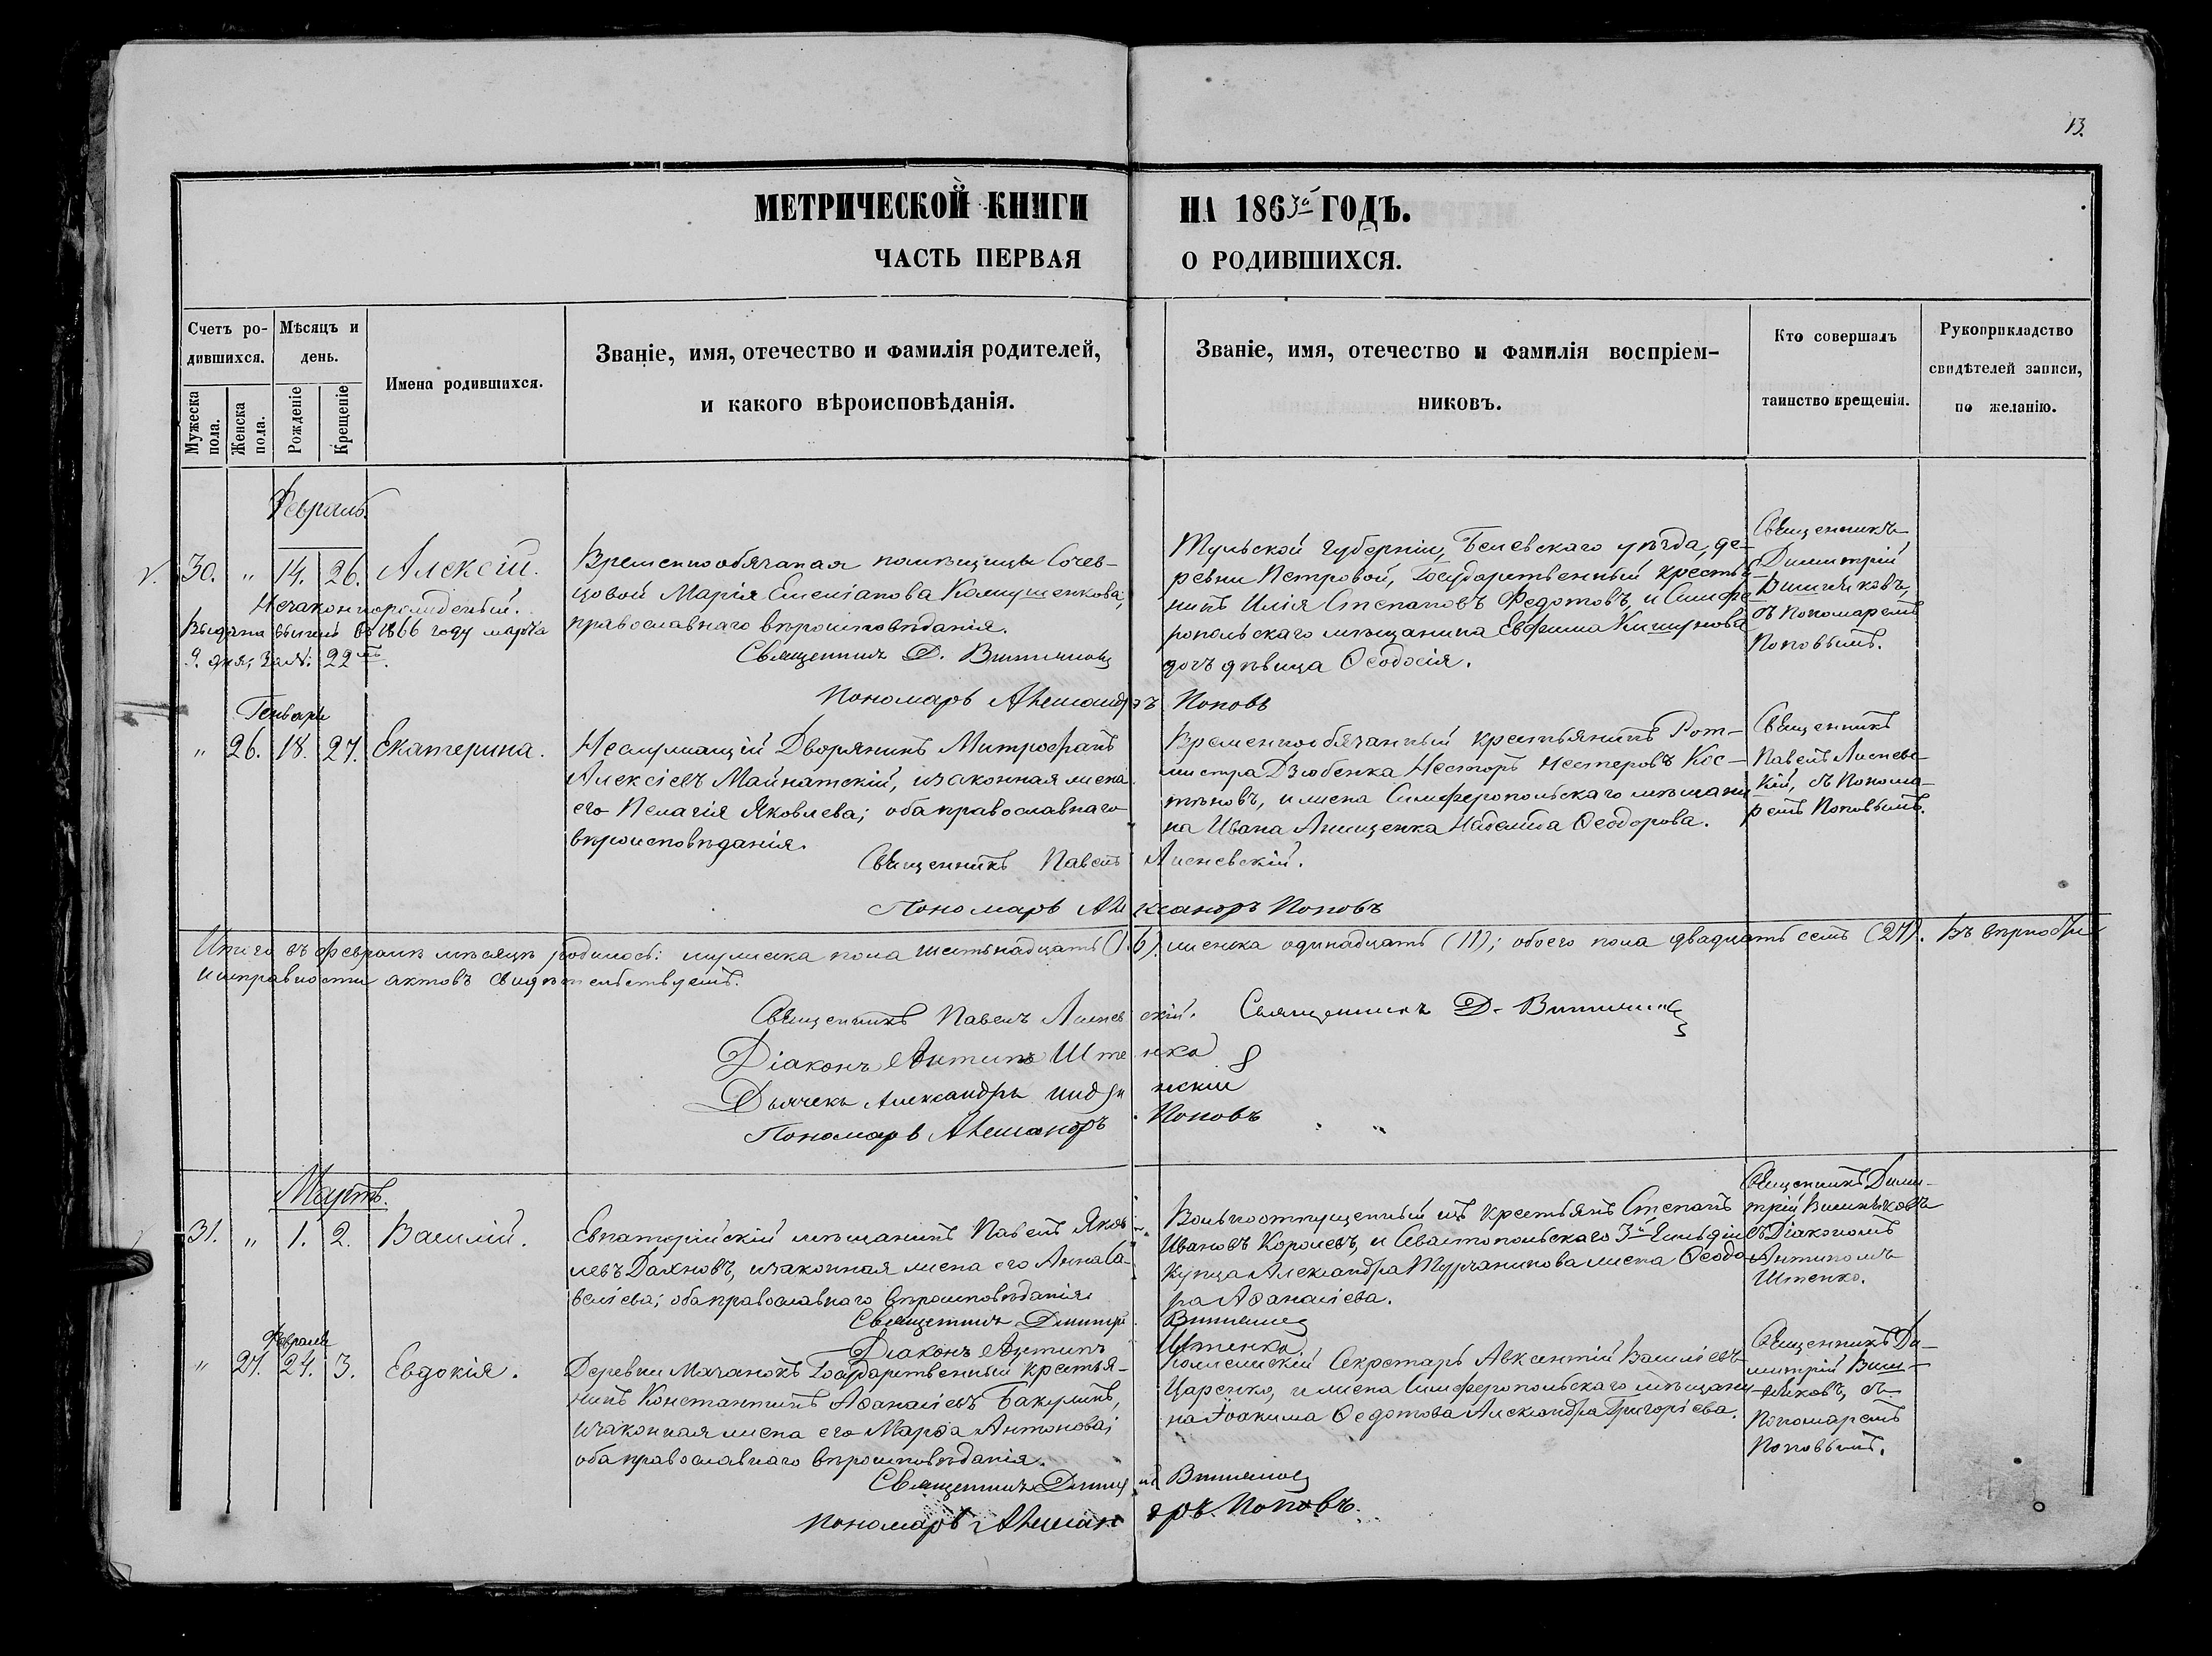 13.
МЕТРИЧЕСКОЙ КНИГИ НА 1863й ГОДЪ.
ЧАСТЬ ПЕРВАЯ О РОДИВШИХСЯ.
Счетъ ро-
дившихся.
Мужеска пола.
Женска пола.
Мѣсяцъ и
день.
Рожденіе
Крещеніе
Имена родившихся.
Званіе, имя, отечество и фамилія родителей,
и какого вѣроисповѣданія.
Званіе, имя, отечество и фамилія воспріем-
никовъ.
Кто совершалъ
таинство крещенія.
Рукоприкладство
свидѣтелей записи,
по желанію.
Февраль.
30. " 14. 26. Алексій.
Незаконнорожденный.
Выдана въ 1866 году марта
9. дня, за №. 22
Временнообязаная помѣщицы Сочев-
цовой Марія Емеліанова Камушенкова,
православнаго вѣроисповѣданія.
Священникъ Д.
Пономарь Александръ Поповъ
Тульской губерніи, Белевскаго уѣзда, де-
ревни Петровой, Государственный крестья-
нинъ Илія Степановъ Федотовъ, и Симфе-
ропольскаго мѣщанина Евфима
дочь дѣвица Ѳеодосія.
Священникъ
Димитрій
съ Пономаремъ
Поповымъ.
Генваря
" 26. 18. 27. Екатерина.
Неслужащій Дворянинъ Митрофанъ
Алексіевъ Майнатскій, и законная жена
его Пелагія Яковлева; оба православнаго
вѣроисповѣданія.
Священникъ Павелъ Лисневскій.
Пономарь Александръ Поповъ
Временнообязанный крестьянинъ Рот-
мистра Дзюбенка Несторъ Нестеровъ Кос-
тяновъ, и жена Симферопольскаго мѣщани
на Ивана Анищенка Ѳеодорова.
Священникъ
Павелъ Лиснев-
скій, съ Понома-
ремъ Поповымъ.
Итого въ февралѣ мѣсяцѣ родилось: мужеска пола шестьнадцать (16), женска одинадцать (11); обоего пола двадцать семь (27). Въ вѣрности
и исправности актовъ свидѣтельствуемъ.
Священникъ Павелъ Лисневскій. Священникъ Д.
Діаконъ Антипъ Штенко
Дьячекъ Александръ
Пономарь Александръ Поповъ
Мартъ.
31. " 1. 2. Василій.
Евпаторійскій мѣщанинъ Павелъ Яков-
левъ Дахновъ, и законная жена его Анна Са-
веліева; оба православнаго вѣроисповѣданія
Священникъ Димитрій
Діаконъ Антипъ Штенко
Вольноотпущенный изъ крестьянъ Степанъ
Ивановъ Королевъ, и Севастопольскаго 3й Гильдіи
купца Александра Турчанинова жена Ѳеодо-
ра Аѳанасіева.
Священникъ Дими-
трій Вишняковъ
съ Діакономъ
Антипомъ
Штенко.
Февраля
" 27. 24. 3. Евдокія.
Деревни Мазанокъ Государственный крестья-
нинъ Константинъ Аѳанасіевъ Бакулинъ,
и законная жена его Марѳа Антонова;
оба православнаго вѣроисповѣданія.
Священникъ Димитрій
Пономарь Александръ Поповъ.
Коллежскій Секретарь Авксентій Василіевъ
Царенко, и жена Симферопольскаго мѣщани-
на Іоакима Ѳедотова Александра Григоріева.
Священникъ Ди-
митрій Виш-
няковъ, съ
Пономаремъ
Поповымъ.